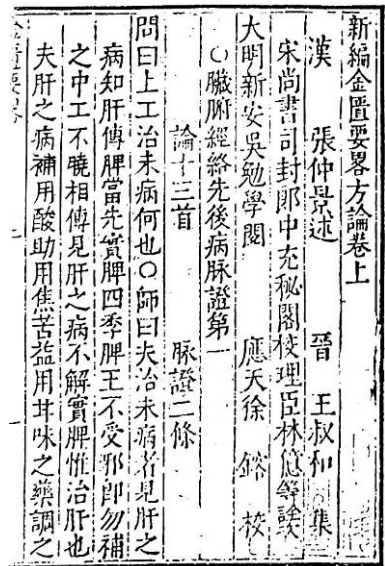 新編金匱要畧方論卷上
漢 張仲景述 晉 王叔和 集
宋尚書司封郎中充秘閣校理臣林億等詮次
大明新安吳勉學閱 應天徐鎔校
○臟腑經絡先後病脉證第一
論十三首 脉證二條
問曰上工治未病何也○師曰夫治未病者見肝之
病知肝傳脾當先實脾四季脾王不受邪即勿補
之中工不曉相傳見肝之病不解實脾惟治肝也
夫肝之病補用酸助用焦苦益用甘味之藥調之